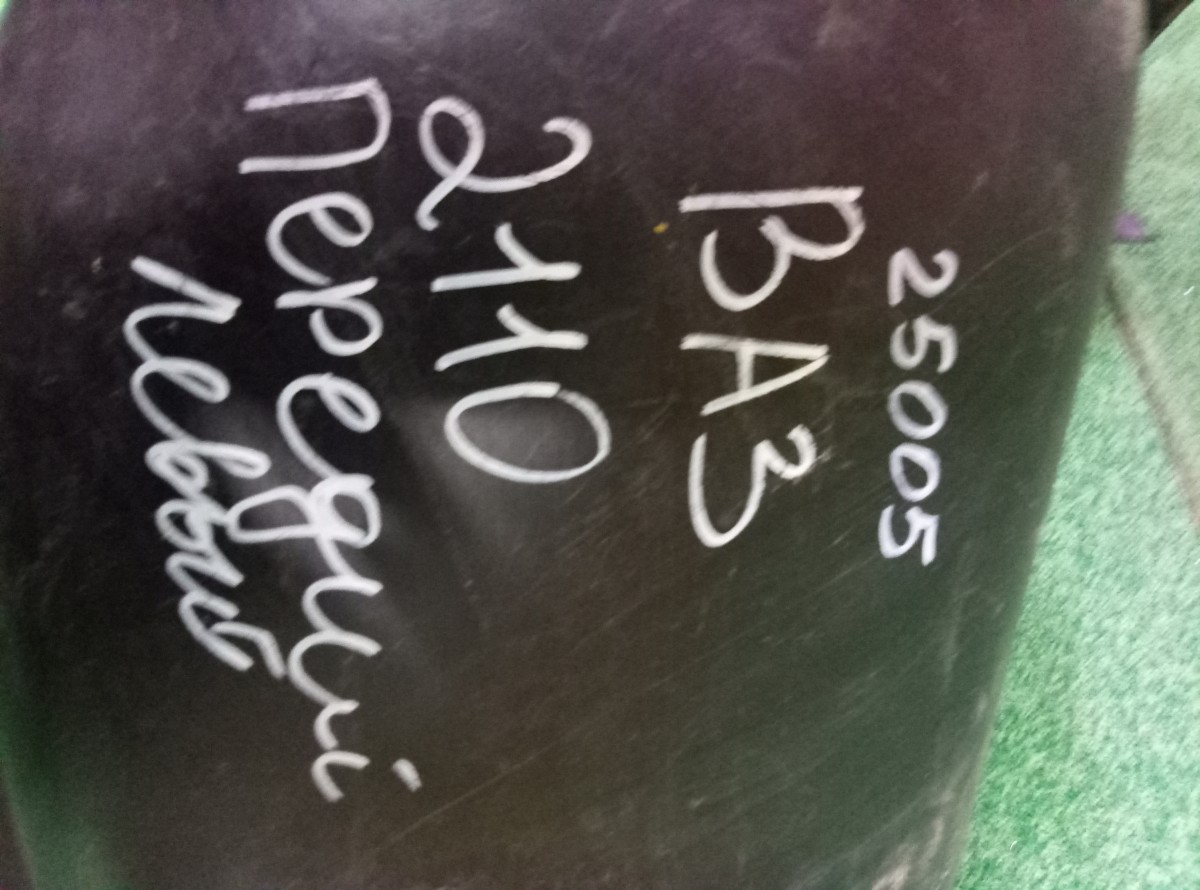 25005
ВАЗ
2110
Передний
левый